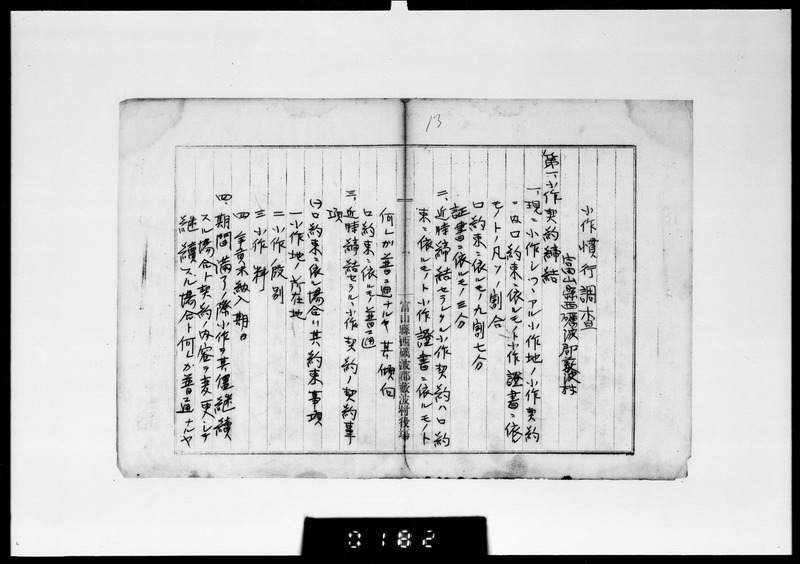 13
小作慣行調査
富山縣西礪波郡薮波村
第一、小作契約締結
一、現ニ小作レツヽアル小作地ノ小作契約
ハ口約束ニ依ルモノト小作證書ニ依ル
モノトノ凡ソノ割合
口約束ニ依ルモノ九割七分
証書ニ依ルモノ三分
二、近時締結セラレタル小作契約ハ口約
束ニ依ルモノト小作證書ニ依ルモノト
富山縣西礪波郡薮波村役場
何レカ普通ナルヤ其傾向
口約束ニ依ルモノ普通
三、近時締結セラルヽ小作契約ノ契約事
項
(イ)口約束ニ依ル場合ハ其約束事項
一 小作地ノ所在地
二 小作ノ段別
三 小作料
四 年貢米納入期日
四、期間満了ノ際小作ヲ其儘継続
スル場合ト契約ノ内容ヲ変更シテ
継續スル場合ト何レカ普通ナルヤ
0182